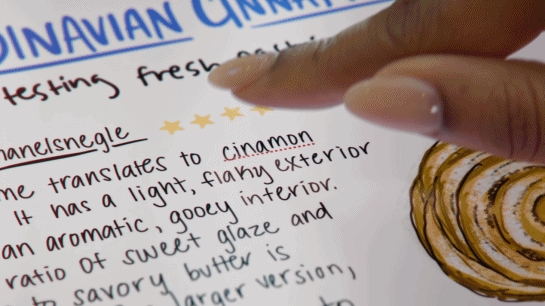 DINAVIAN CINNAM
testing fresh
anelsnegle
me translates to cinamon
It has a light, flaky exterior
an aromatic, gooey interior.
ratio of sweet glaze and
to savory butter is
larger version,
to